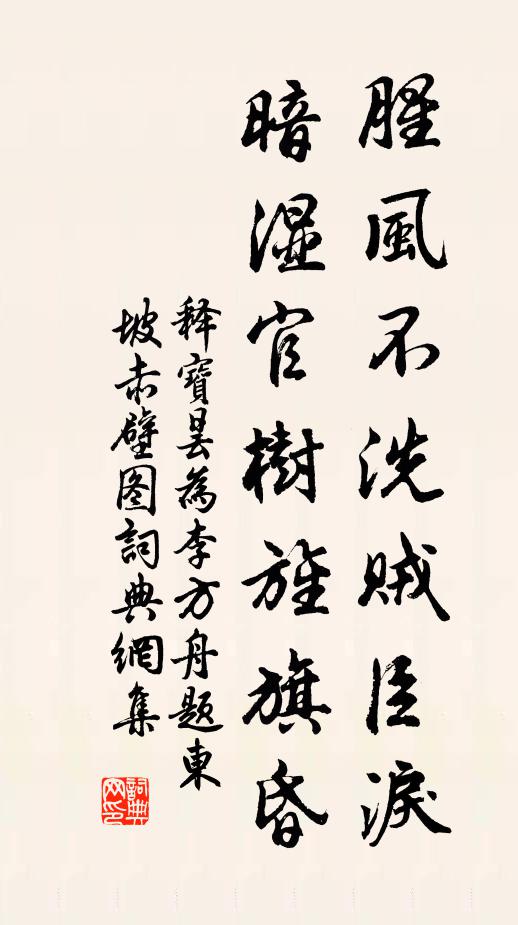 腥風不洗賊臣淚
暗濕官樹旌旗昏
释寶曇為李方舟题東
坡赤壁图詞典網集
詞典网印